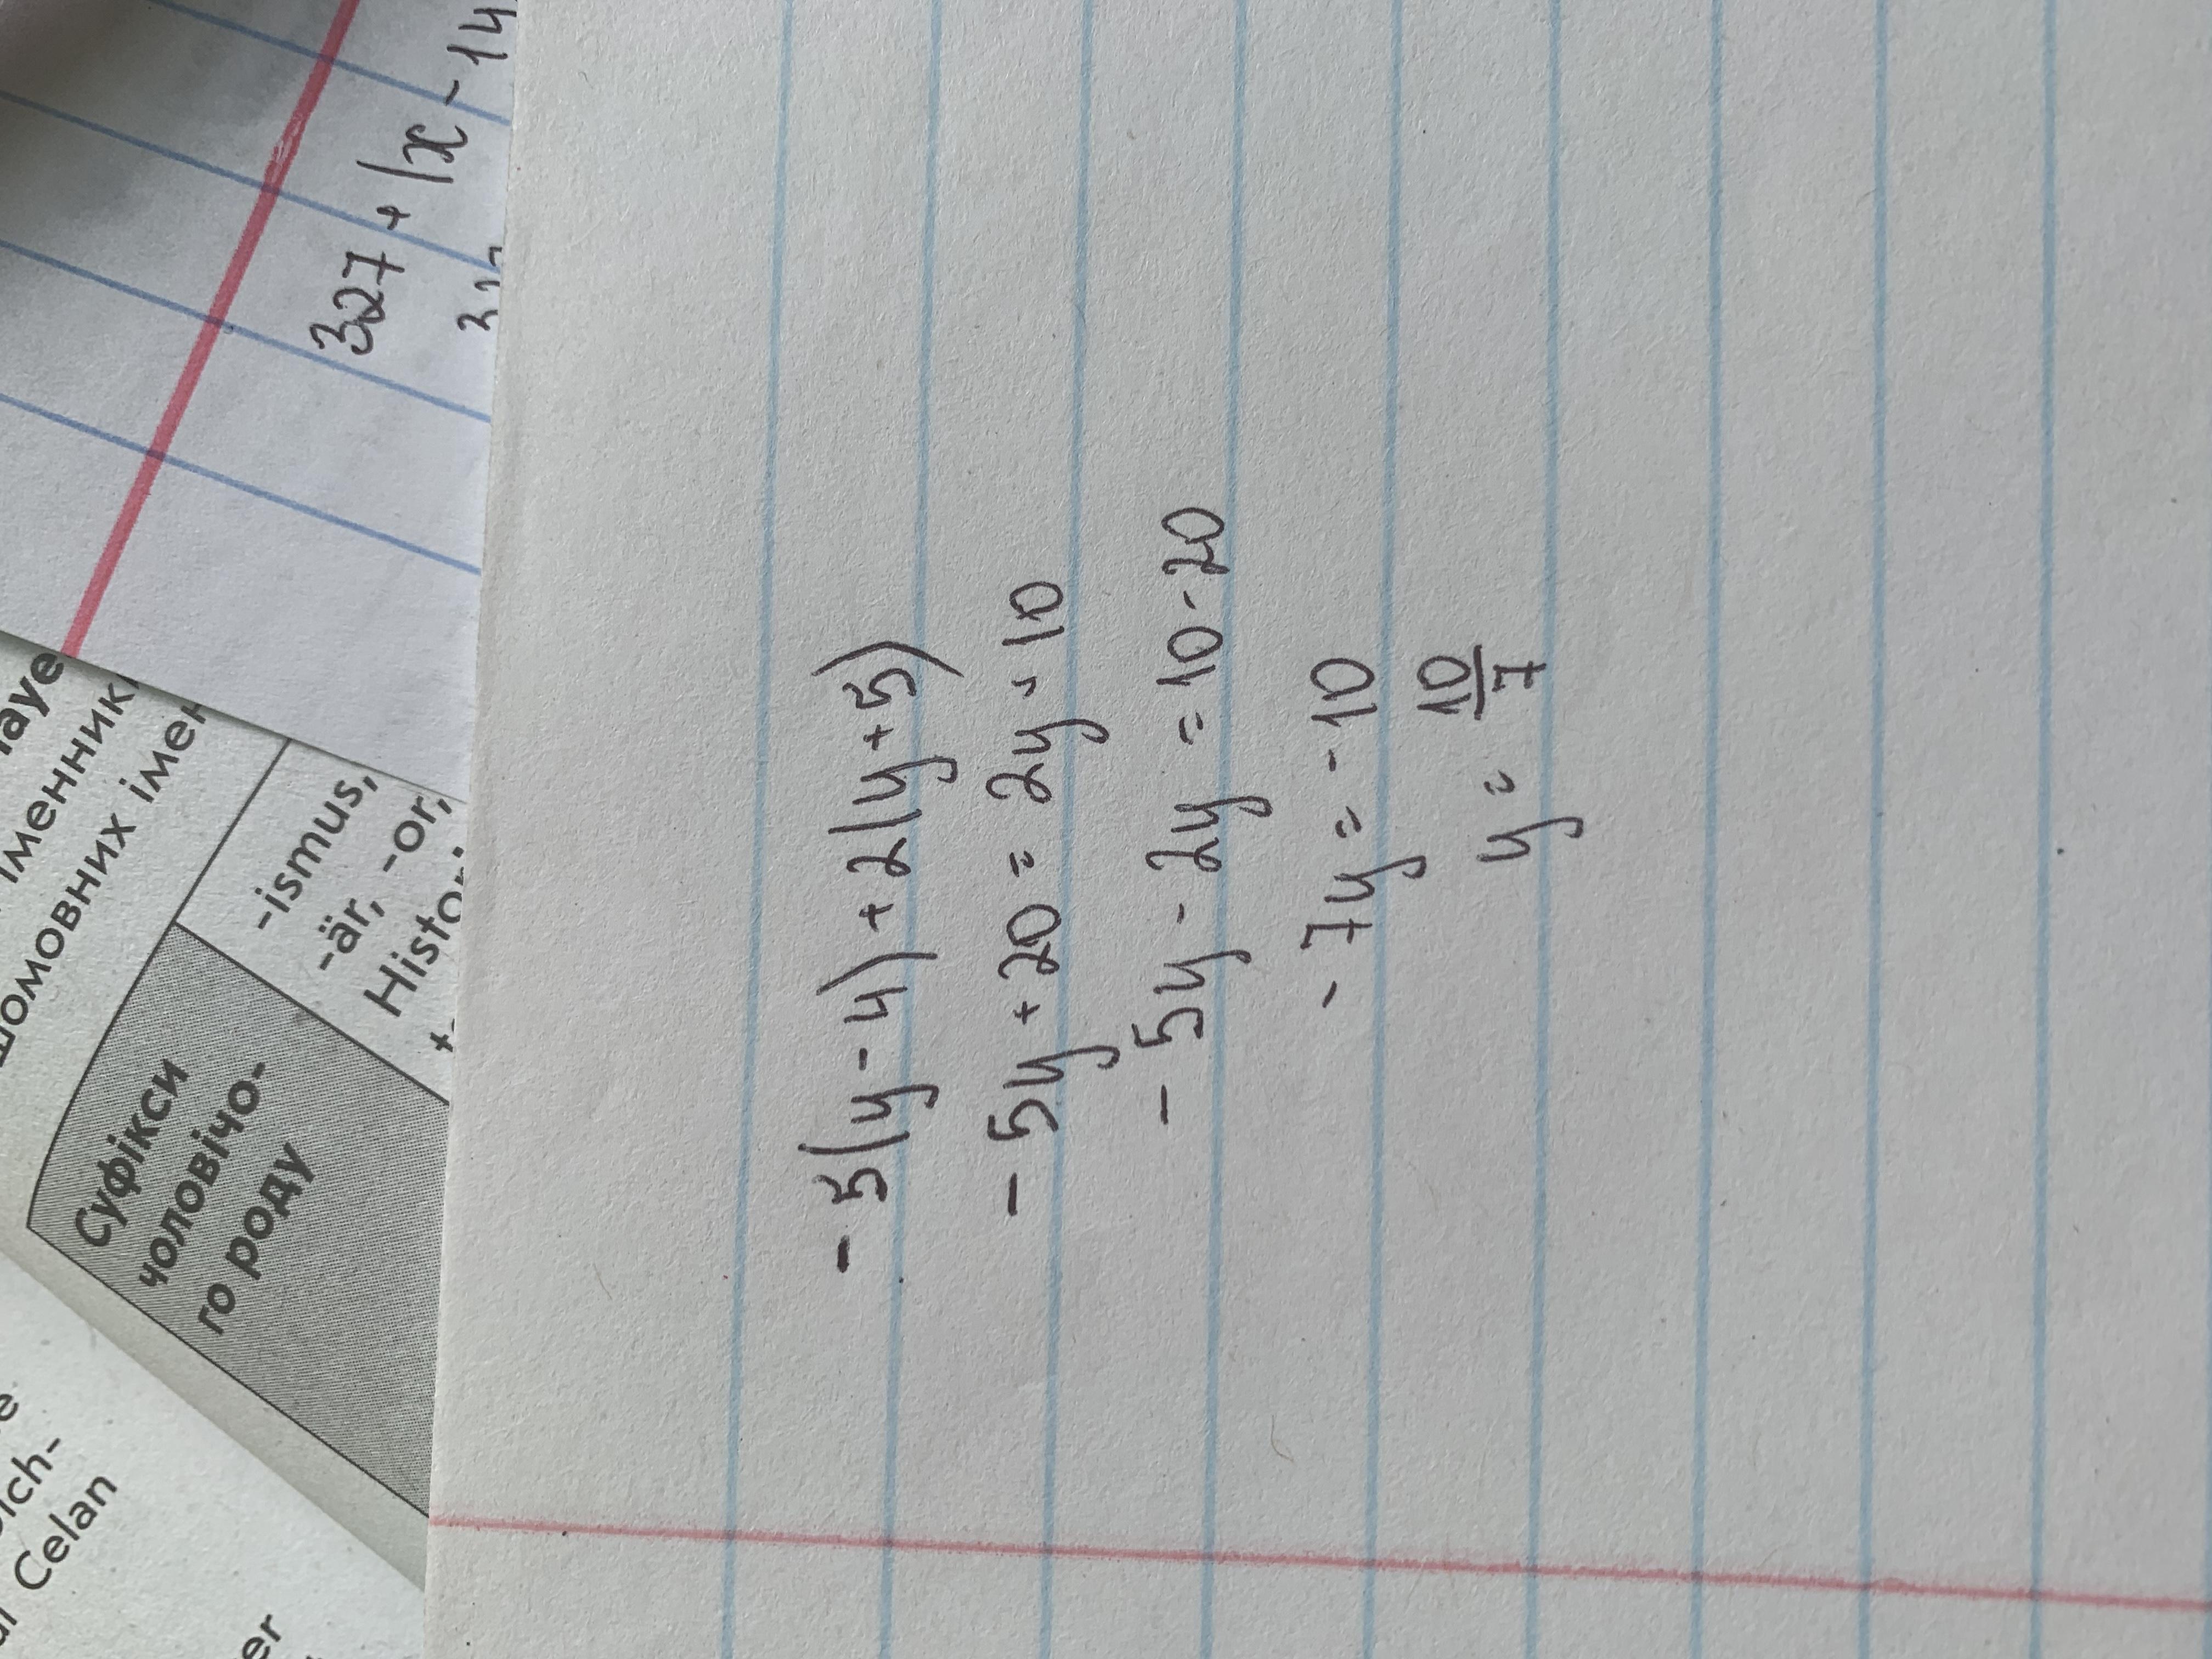 -5(y-4)+2(y+5)
-5y+20=2y+10
-5y-2y=10-20
-7y=-10
y=10/7
327+|x-14
іменник
шомовних імен
Суфікси
чоловічо-
го роду
-ismus,
-är, -or,
Histori
ich-
Celan
er